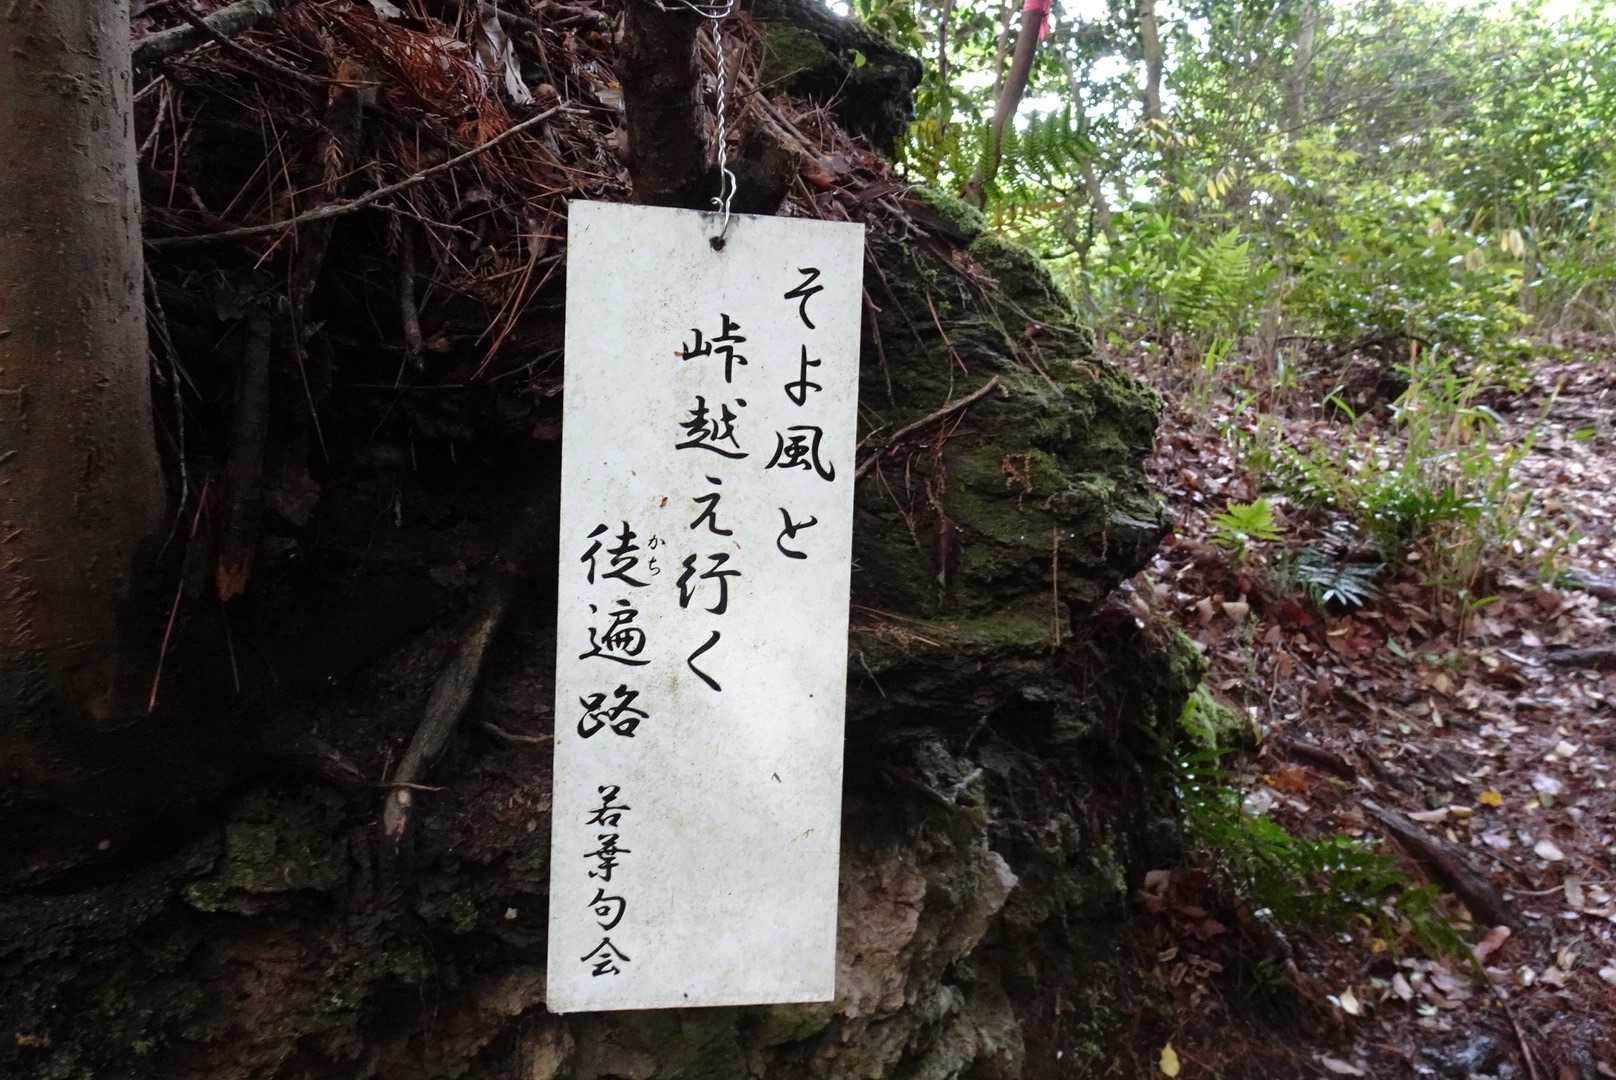 そよ風と
峠越え行く
徒遍路
かち
若葉句会